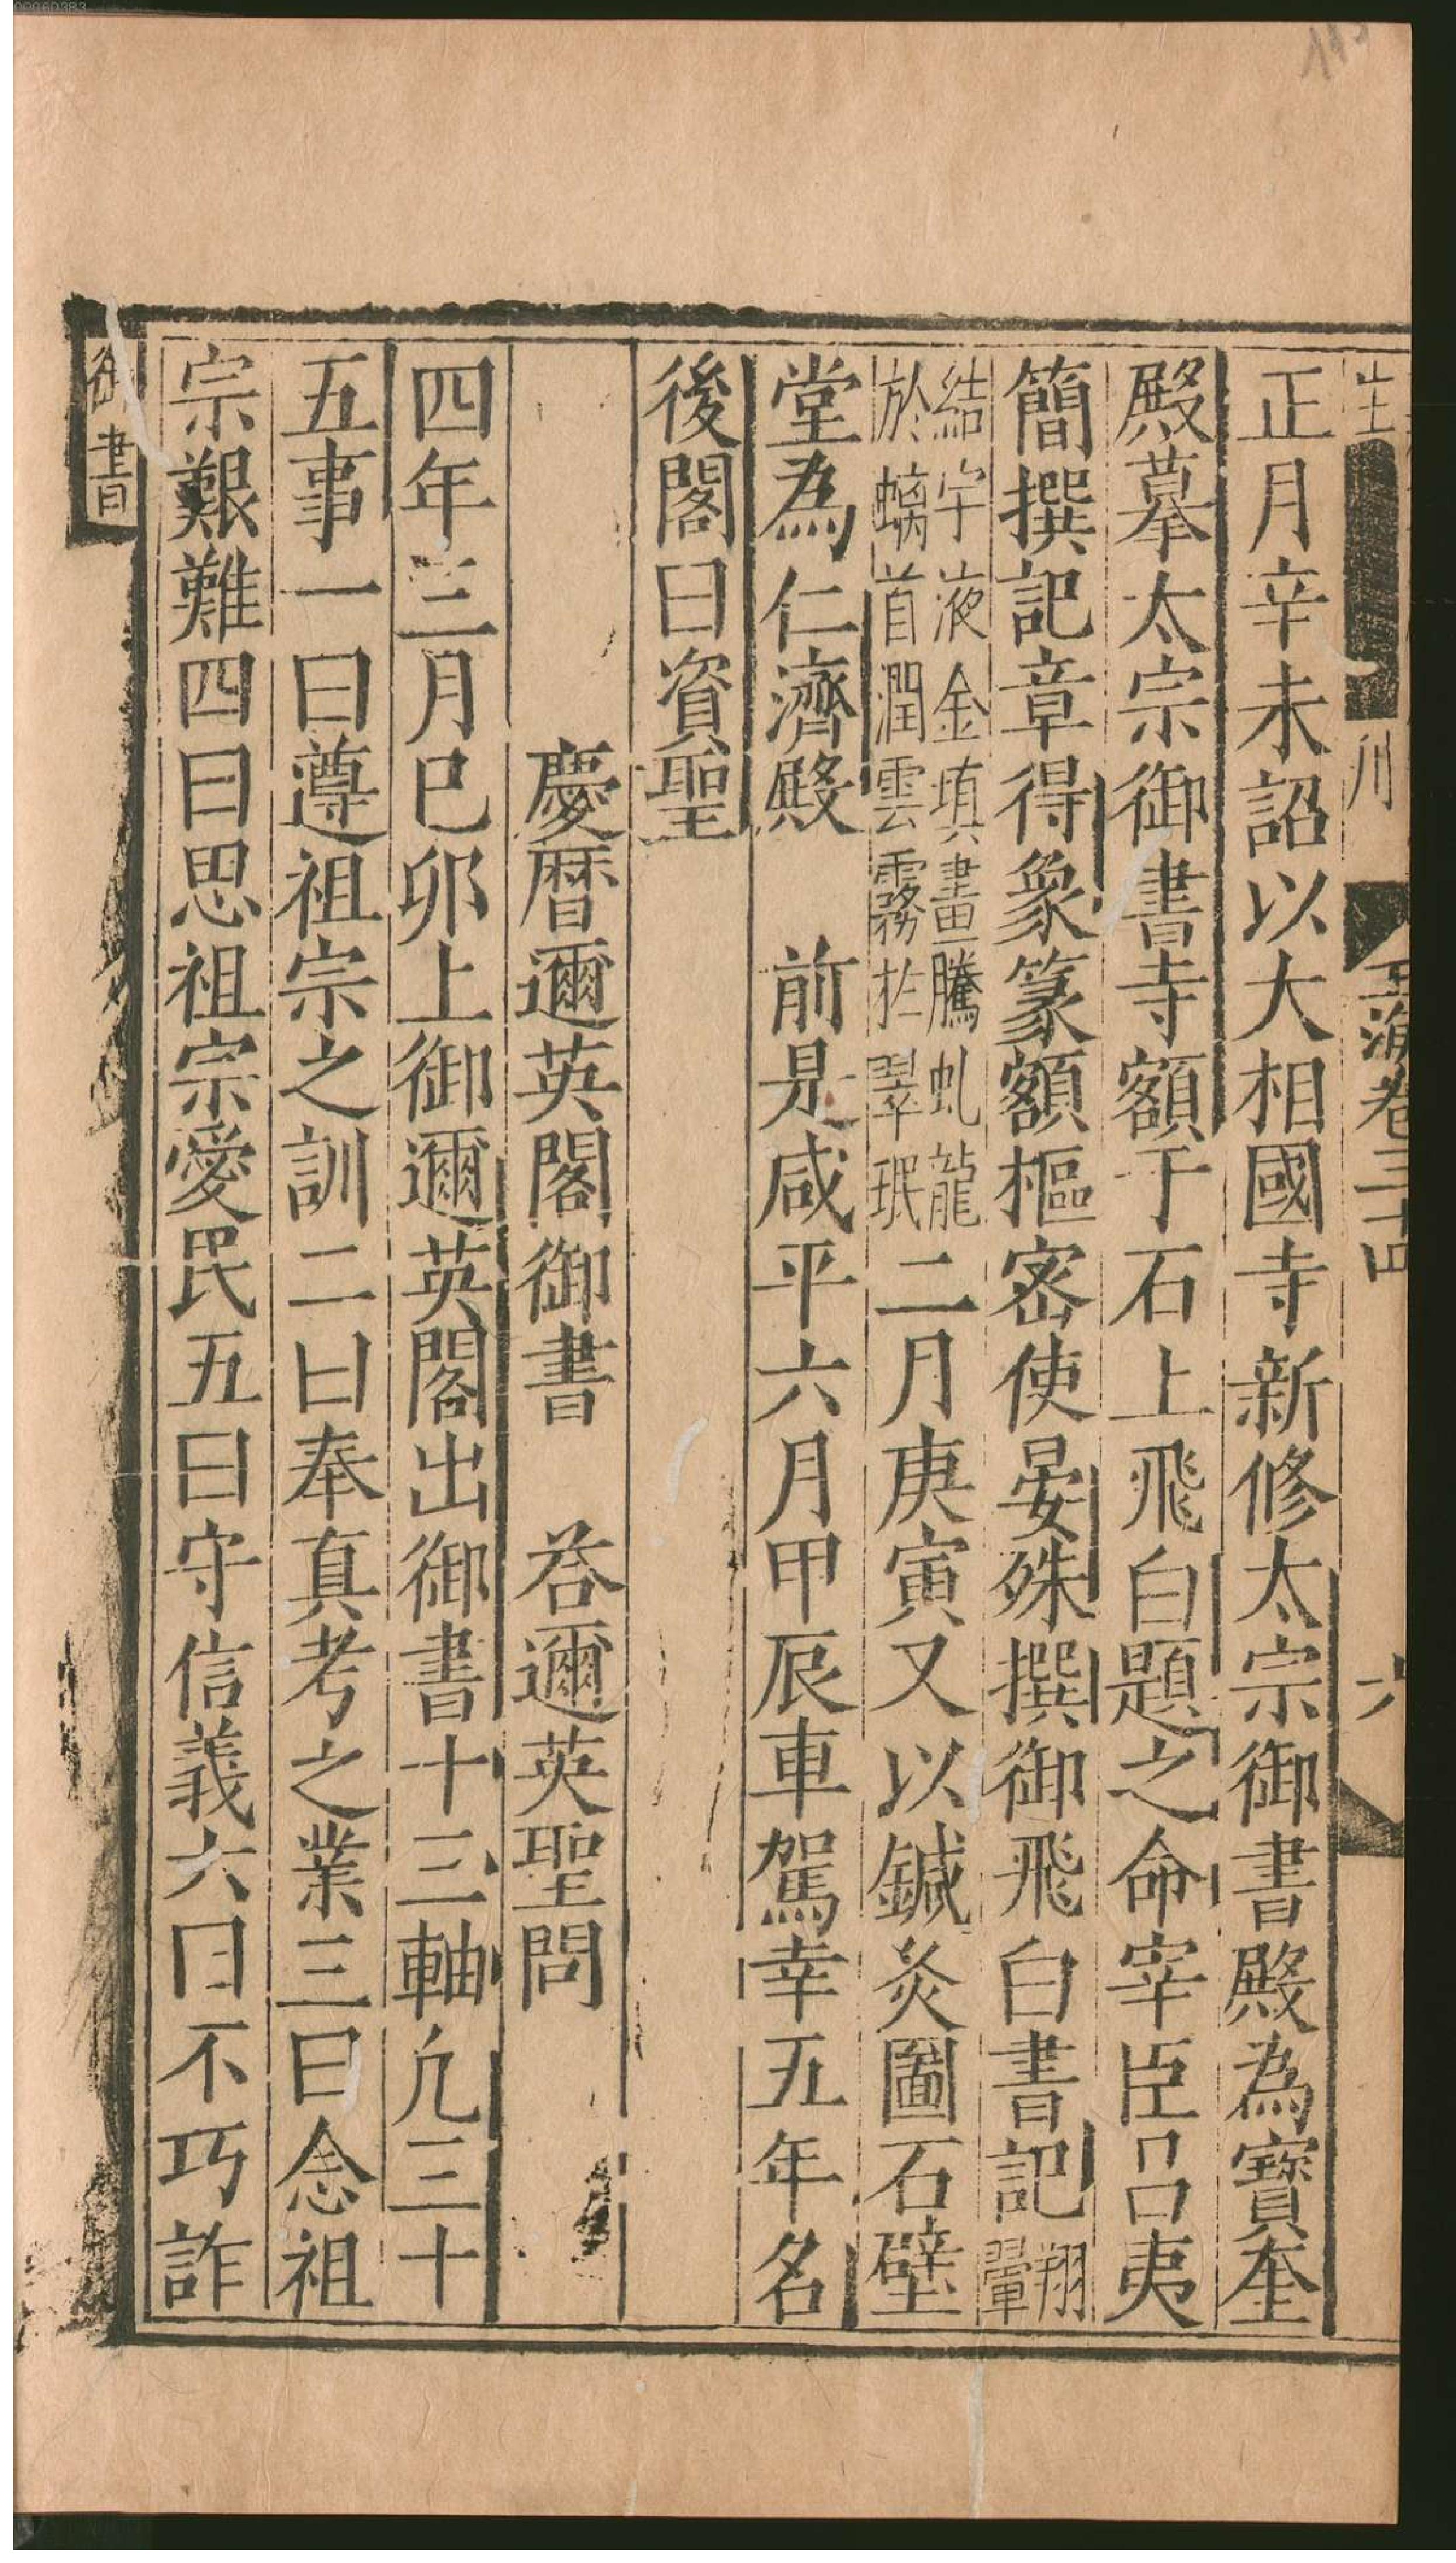 正月辛未詔以大相國寺新修太宗御書殿為寶奎
殿摹太宗御書寺額于石上飛白題之命宰臣吕夷
簡撰記章得象篆額樞密使晏殊撰御飛白書記翔翬
結宇液金填畫騰虬龍
於螭首潤雲霧扵翠珉
二月庚寅又以鍼灸圖石壁
堂為仁濟殿　前是咸平六月甲辰車駕幸五年名
後閣曰資聖
慶曆邇英閣御書　荅邇英聖問
四年三月巳卯上御邇英閣出御書十三軸凢三十
五事一曰遵祖宗之訓二曰奉真考之業三曰念祖
宗艱難四曰思祖宗愛民五曰守信義六曰不巧詐
御書
玉海卷三十四
六